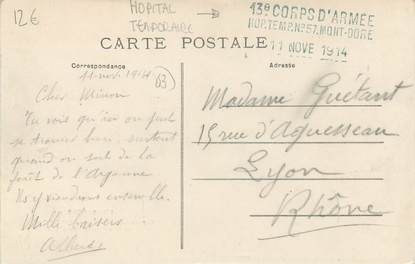 12€
HOPITAL
TEMPORAIRE
13e CORPS D'ARMÉE
HOP. TEMP. N° 57. MONT-DORE
11 NOV 1914
CARTE POSTALE
Correspondance
Adresse
11 nov. 1914
63
Cher Minon
Tu vois qu'ici on peut
se trouver bien, surtout
quand on sort de la
forêt de l'Argonne
Nous y viendrons ensemble.
Mille baisers
Madame Guétant
15 rue d'Aguesseau
Lyon
Rhône